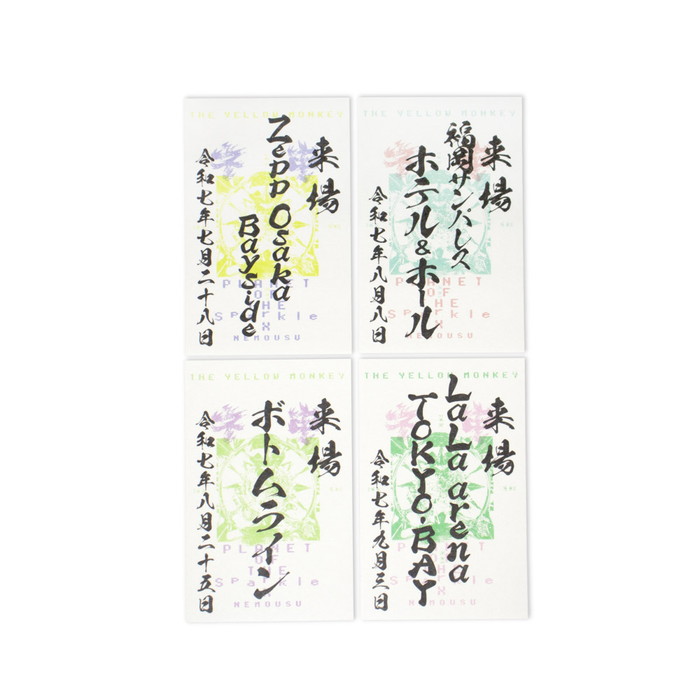 THE YELLOW MONKEY
来場
Zepp Osaka
Bayside
令和七年七月二十八日
PLANET
OF
THE
Sparkle
X
NEMOUSU
来場
福岡サンパレス
ホテル&ホール
令和七年八月八日
PLANET
OF
THE
Sparkle
X
NEMOUSU
THE YELLOW MONKEY
来場
ボトムライン
令和七年八月二十五日
PLANET
OF
THE
Sparkle
NEMOUSU
THE YELLOW MONKEY
来場
LaLa arena
TOKYO-BAY
令和七年九月三日
PLANET
OF
THE
Sparkle
X
NEMOUSU